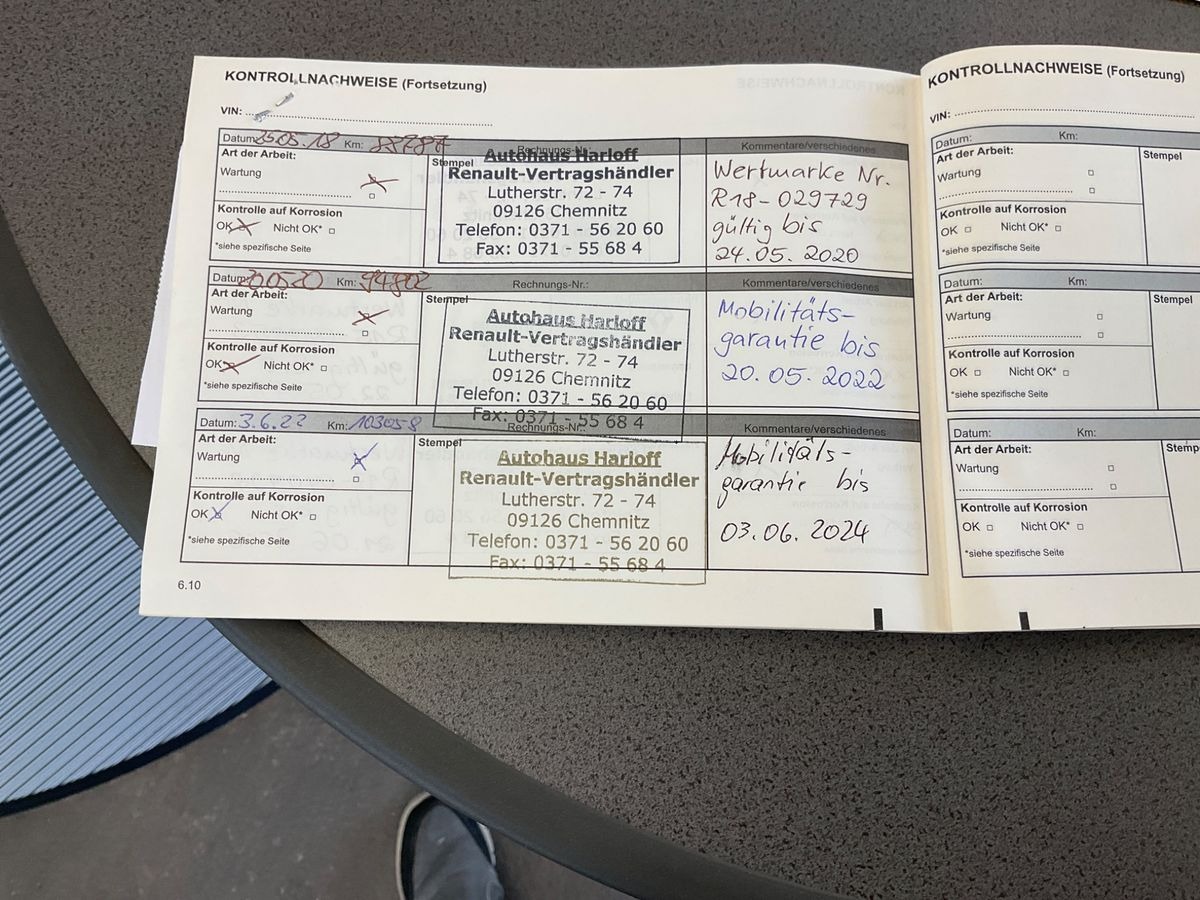 KONTROLLNACHWEISE (Fortsetzung)
VIN:
Datum: 25.05.18 Km: Rechnungs-Nr.: Kommentare/verschiedenes
Art der Arbeit:
Wartung
Kontrolle auf Korrosion
OK Nicht OK*
*siehe spezifische Seite
Stempel
Autohaus Harloff
Renault-Vertragshändler
Lutherstr. 72 - 74
09126 Chemnitz
Telefon: 0371 - 56 20 60
Fax: 0371 - 55 68 4
Wertmarke Nr.
R18-029729
gültig bis
24.05.2020
Datum: 200520 Km: 94802 Rechnungs-Nr.: Kommentare/verschiedenes
Art der Arbeit:
Wartung
Kontrolle auf Korrosion
OK Nicht OK*
*siehe spezifische Seite
Stempel
Autohaus Harloff
Renault-Vertragshändler
Lutherstr. 72 - 74
09126 Chemnitz
Telefon: 0371 - 56 20 60
Fax: 0371 - 55 68 4
Mobilitäts-
garantie bis
20.05.2022
Datum: 3.6.22 Km: 103058 Rechnungs-Nr.: Kommentare/verschiedenes
Art der Arbeit:
Wartung
Kontrolle auf Korrosion
OK Nicht OK*
*siehe spezifische Seite
Stempel
Autohaus Harloff
Renault-Vertragshändler
Lutherstr. 72 - 74
09126 Chemnitz
Telefon: 0371 - 56 20 60
Fax: 0371 - 55 68 4
Mobilitäts-
garantie bis
03.06.2024
6.10
KONTROLLNACHWEISE (Fortsetzung)
VIN:
Datum: Km:
Art der Arbeit:
Wartung
Kontrolle auf Korrosion
OK Nicht OK*
*siehe spezifische Seite
Stempel
Datum: Km:
Art der Arbeit:
Wartung
Kontrolle auf Korrosion
OK Nicht OK*
*siehe spezifische Seite
Stempel
Datum: Km:
Art der Arbeit:
Wartung
Kontrolle auf Korrosion
OK Nicht OK*
*siehe spezifische Seite
Stemp